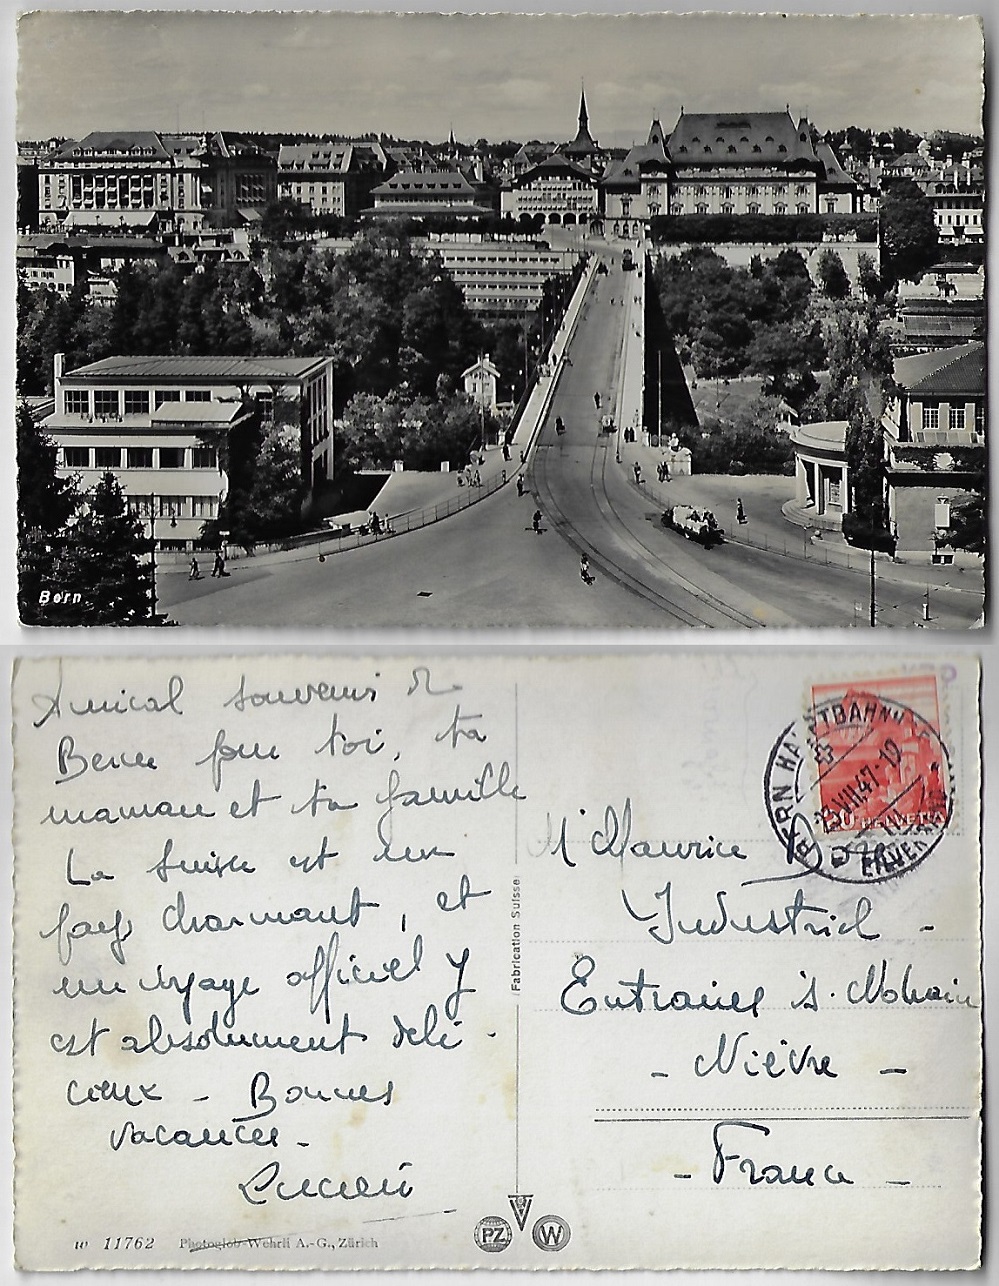 Bern
Amical souvenir de
Berne pour toi, ta
maman et ta famille
La Suisse est un
pays charmant, et
un voyage officiel y
est absolument déli-
cieux - Bonnes
vacances -
Lucien
M Maurice
Industriel -
Entrains s. Nohain
- Nièvre -
- France -
BERN HAUPTBAHNHOF
VIII.47-12
HELVETIA
Fabrication Suisse
W 11762 Photoglob-Wehrli A.-G., Zürich
PZ
W